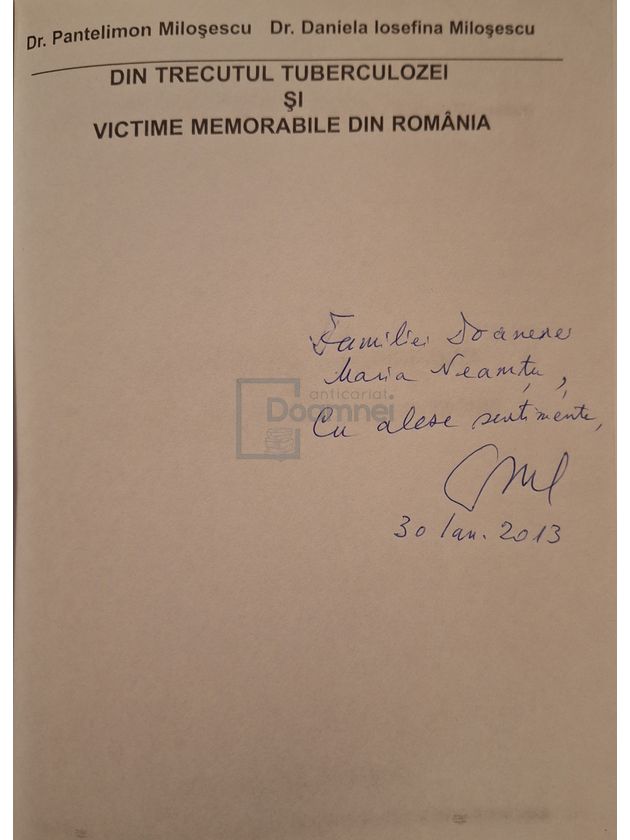 Dr. Pantelimon Miloşescu Dr. Daniela Iosefina Miloşescu
DIN TRECUTUL TUBERCULOZEI
ŞI
VICTIME MEMORABILE DIN ROMÂNIA
Familiei Doamnei
Maria Neamțu,
anticariat
Doamnei
Cu alese sentimente,
30 Ian. 2013